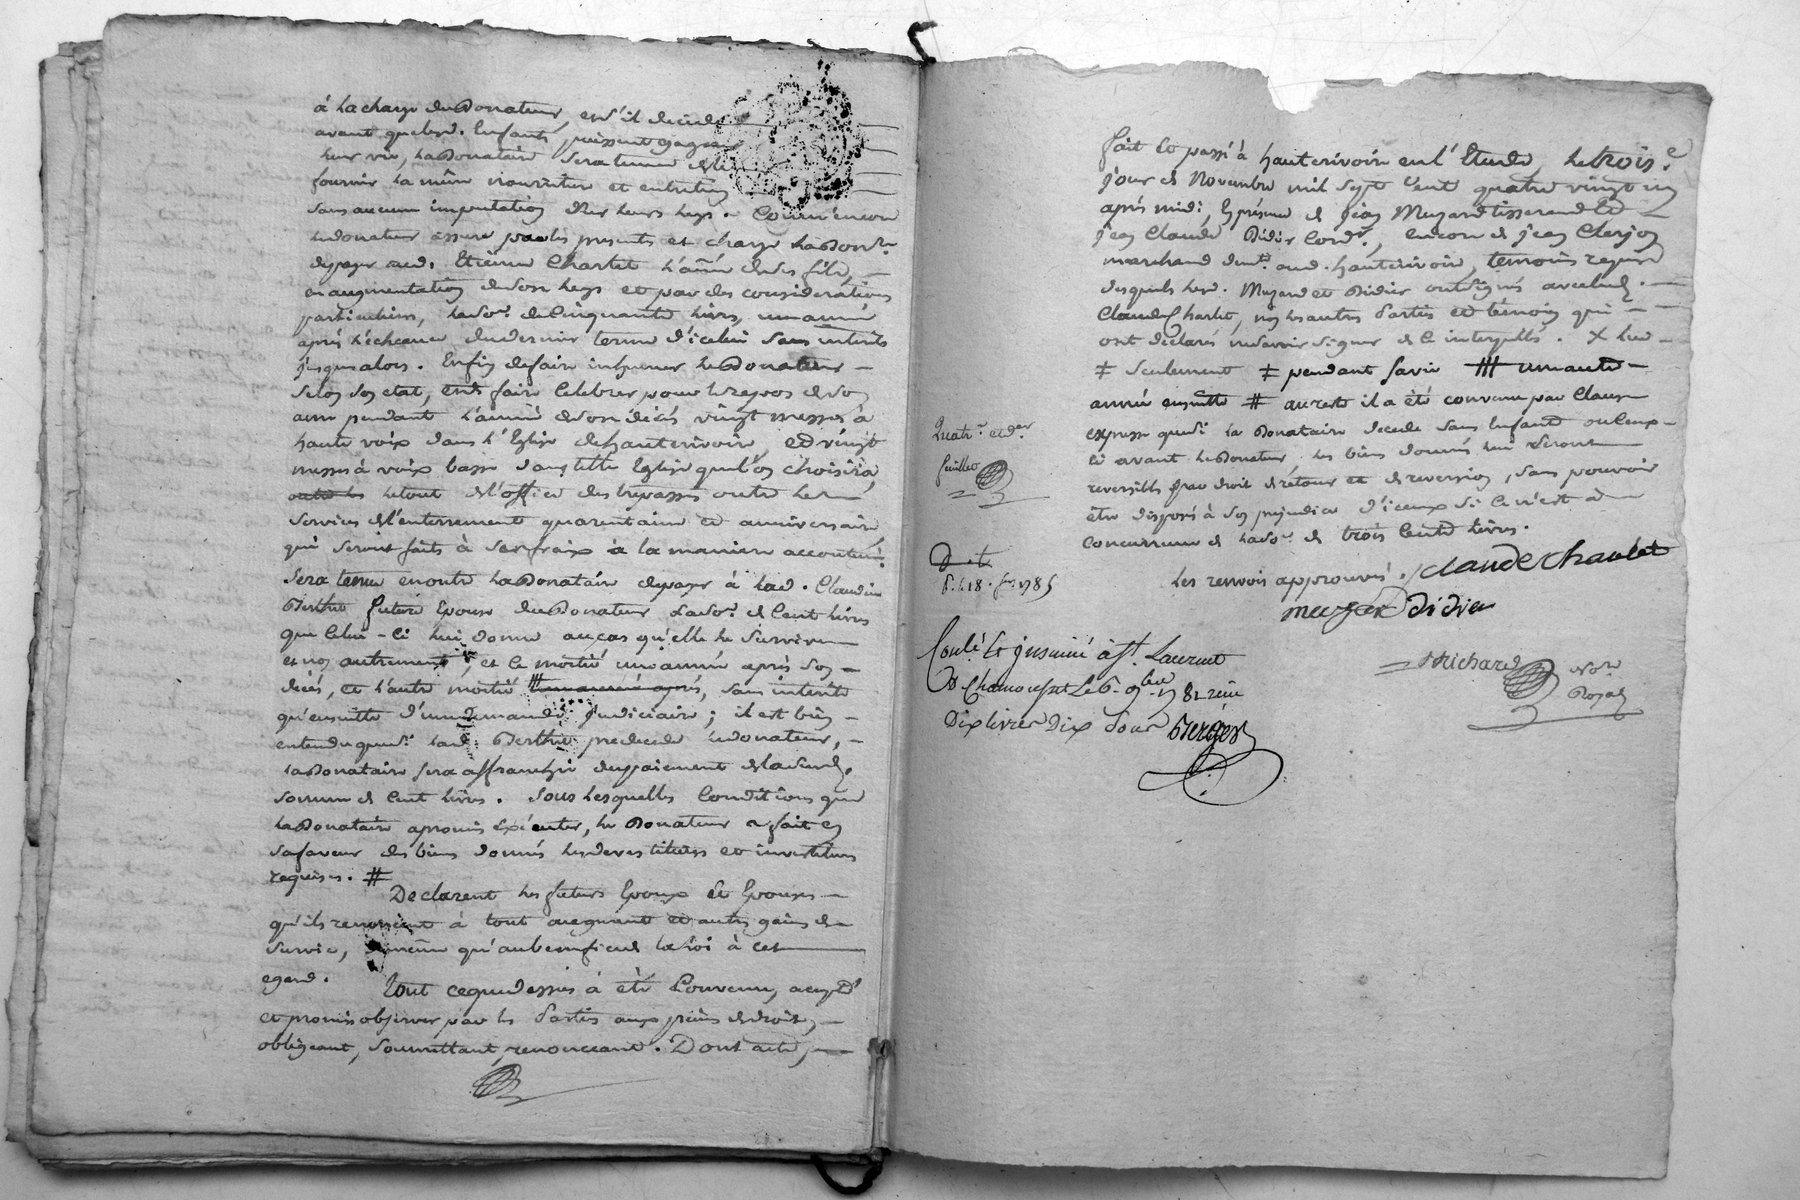 à la charge du Donateur, et s'il decede
avant que lesd. Enfants puissent gagner
leur vie, la Donataire sera tenue de
fournir la même nourriture et entretien
sans aucune imputation sur leurs legs. Comm'encore
le donateur assure par les presentes et charge la Don.re
de payer aud. Etienne Charlet l'ainé de ses fils,
en augmentation de son legs et par des considerations
particulieres, la so.e de Cinquante livres, un année
après l'écheance du dernier terme d'icelui sans interets
jusques alors. Enfin de faire inhumer le Donateur
selon son etat, et de faire Celebrer pour le repos de son
ame pendant l'année de son décès vingt messes à
haute voix dans l'Eglise de hauterivoire, et vingt
messes à voix basse dans telle Eglise que l'on choisira,
outre les le tout de l'office des trepassés outre les
services de l'enterrement quarentaine et anniversaire
qui seront faits à ses fraix à la maniere accoutumé.
sera tenue en outre la Donataire de payer à lad. Claudine
Berthet future Epouse du Donateur la so.e de Cent livres
que Celui-ci lui donne au cas qu'elle le survive
et non autrement, et ce moitié une année après son
décès, et l'autre moitié une année après, sans interets
qu'ensuitte d'une demande judiciaire ; il est bien
entendu que si lad. Berthet predecede le donateur,
la Donataire sera affranchie du paiement de lad.
somme de Cent livres. sous lesquelles Conditions que
la Donataire a promis Exécuter, le Donateur a fait en
sa faveur des biens donnés les devestitures et investitures
requises. #
Declarent les futurs Epoux et Epouses
qu'ils renoncent à tout augment et autres gains de
survie, même qu'au benefice de la loi à cet
egard.
Tout ce que dessus à été Convenu, accepté
et promis observer par les Parties aux peines de droit,
obligeant, soumettant, renonceant. Dont acte,
fait et passé à hauterivoire en l'Etude le trois.e
jour de Novembre mil sept Cent quatre vingt un
après midi, En présence de Jean Muzard tisserand et
jean Claude Didier Cord.r, encore de jean Clerjon
marchand dem.t aud. hauterivoire, temoins requis
desquels lesd. Muzard et Didier ont signés avec led.
Claude Charlet, non les autres Parties et témoin qui
ont déclarés ne savoir signer de ce interpellés. X
‡ seulement ‡ pendant sa vie # une autre
année ensuitte # au reste il a été convenu par Clause
expresse que si la Donataire decede sans Enfant ou Ceux-
ci avant le Donateur les biens donnés lui seront
reversibles par droit de rétour et de reversion, sans pouvoir
être disposé à son prejudice d'iceux si ce n'est à
concurrence de la so.e de trois Cents livres.
Les renvois approuvés. Claude Charlet
Muzard Didier
Richard No.re
Royal
Quatr.e et d.er
feuillet
Conlé et insinué à St. Laurent
De Chamousset le 6. 9bre 1781 reçu
Dix livres Dix sous Berger